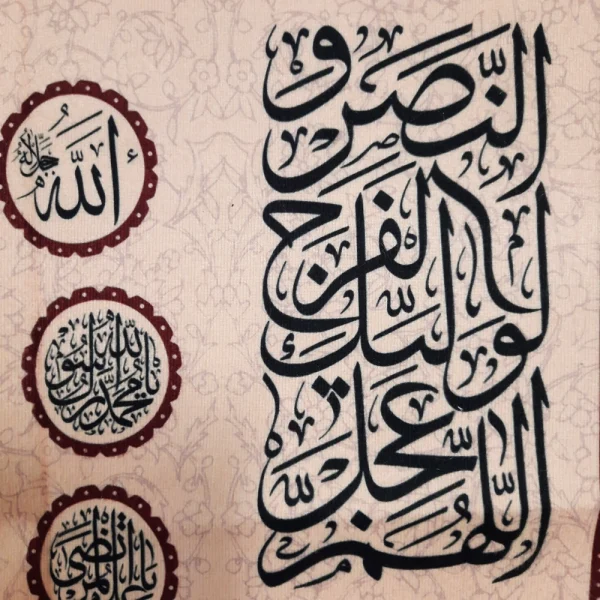 اللهم عجل
لوليك الفرج
و النصر
الله جل جلاله
يا محمد رسول الله